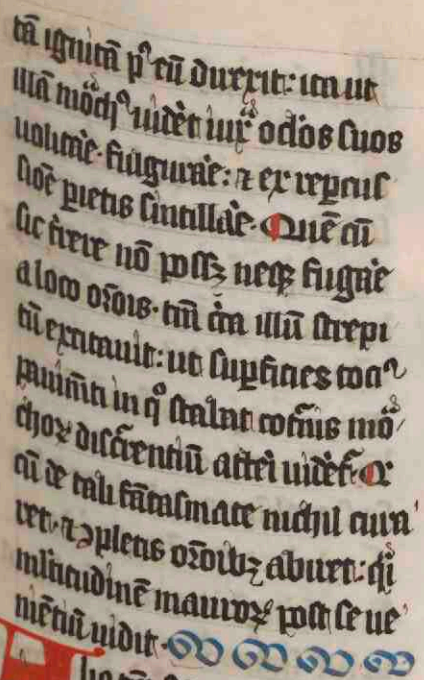 tā ignitā pᵒ eū duxit: ita ut
illā mōchꝰ uidēt iux̄ oc̄los suos
uolitāe· fulgurāe: ⁊ ex reꝑcus
sioē ꝑietis sintillāe· Quē cū
sic t̄rere nō possꝫ neqꝫ fugāe
a loco or̄ōis· tm̄ c̄ͣ illū strepi
tū excitauit: ut suꝑficies toci᷒
pauimēti in qͦ stabat cot̄nis mō
choꝝ disc̄rentiū att̄i uidēt̄· Qͬ
cū de tali fātasmate nichil cura
ret· ⁊ ↄpletis or̄ōibꝫ abiret: qͥ
ml̄titudinē mauroꝝ post se ue
niētiū uidit·